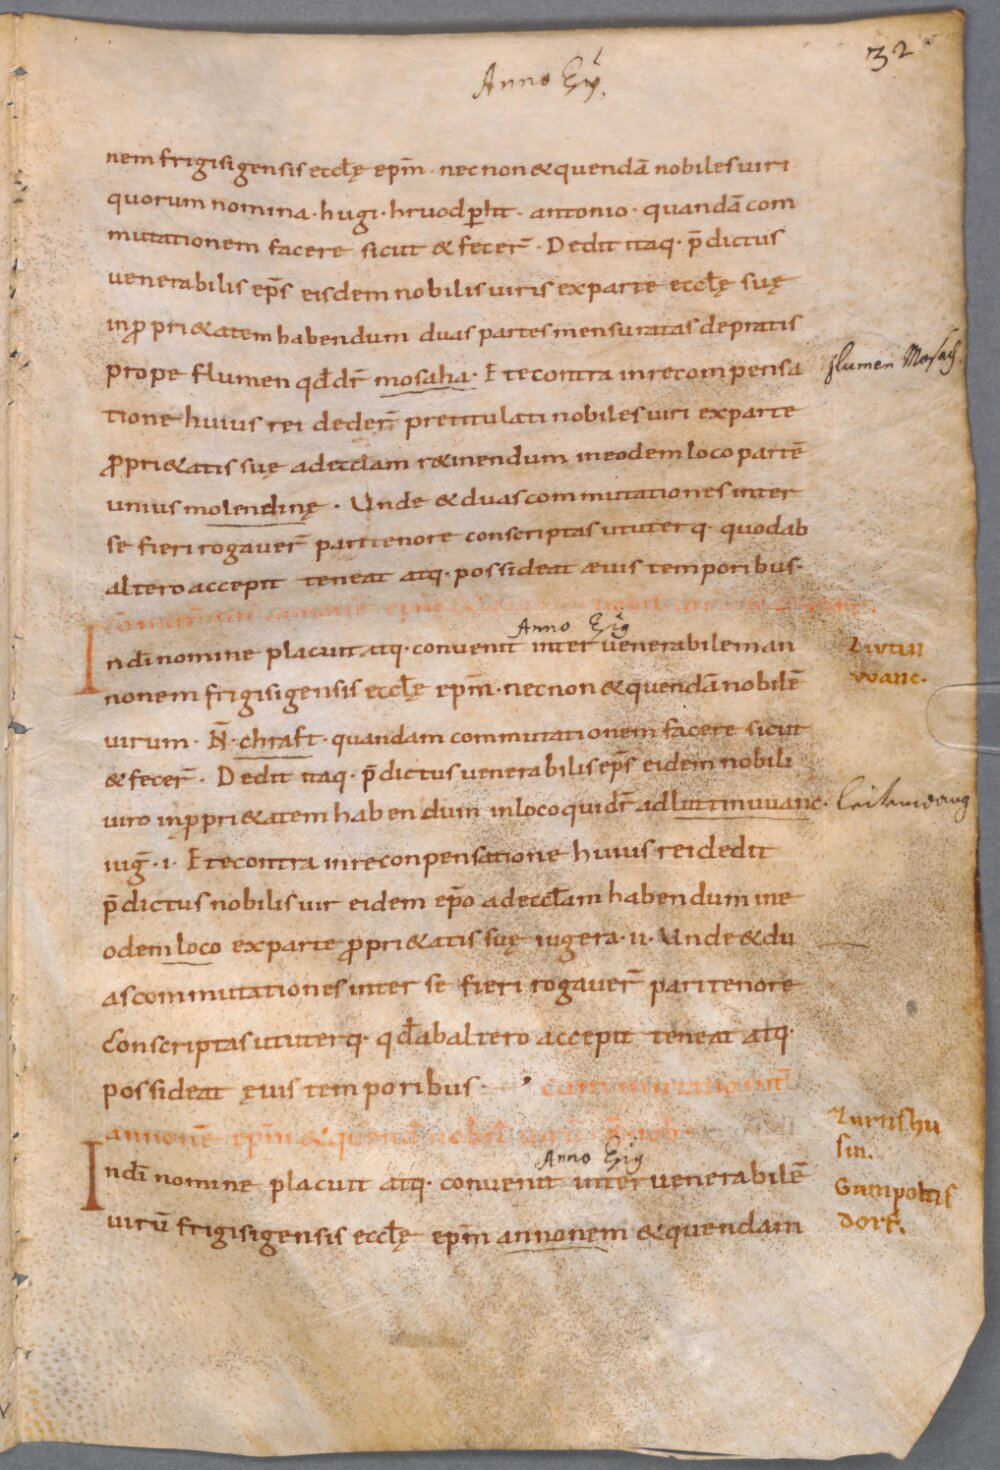 32
Anno
nem frigisigensis eccłę ep̄m · necnon & quendā nobiles uiri
quorum nomina · hugi · hruodꝑht · antonio · quandā com
mutationem facere sicut & fecer̄ · Dedit itaq· p̄dictus
uenerabilis ep̄s eisdem nobilis uiris ex parte eccłę suę
in ꝓpri&atem habendum duas partes mensuratas de pratis
prope flumen qđ dr̄ mosaha · Et econtra in recompensa
flumen Mosach
tione huius rei deder̄ pretitulati nobiles uiri ex parte
ꝓpri&atis suę ad eccłam r&inendum in eodem loco partē
unius molendinę · Unde & duas commutationes inter
se fieri rogauer̄ pari tenore conscriptas ut uterq· quod ab
altero accepit teneat atq· possideat æuis temporibus·
Anno
Indī nomine placuit atq· conuenit inter uenerabilem an
Liutin
nonem frigisigensis eccłę ep̄m · necnon & quendā nobilē
wanc.
uirum · N̄ · chraft · quandam commutationem facere sicut
& fecer̄ · Dedit itaq· p̄dictus uenerabilis ep̄s eidem nobili
uiro in ꝓpri&atem habendum in loco qui dr̄ ad liutinuuanc·
iug̅ · i · Et econtra in reconpensatione huius rei dedit
p̄dictus nobilis uir eidem ep̄o ad eccłam habendum in e
odem loco ex parte ꝓpri&atis suę iugera · ii · Unde & du
as commutationes inter se fieri rogauer̄ pari tenore
conscriptas ut uterq· qđ ab altero accepit teneat atq·
possideat ęuis temporibus · commutatio int̄
annonē ep̄m & quendā nobil uirū
Anno
Zurnshu
sin.
Indī nomine placuit atq· conuenit inter uenerabilē
Gumpoltis
dorf.
uirū frigisigensis eccłę ep̄m annonem & quendam